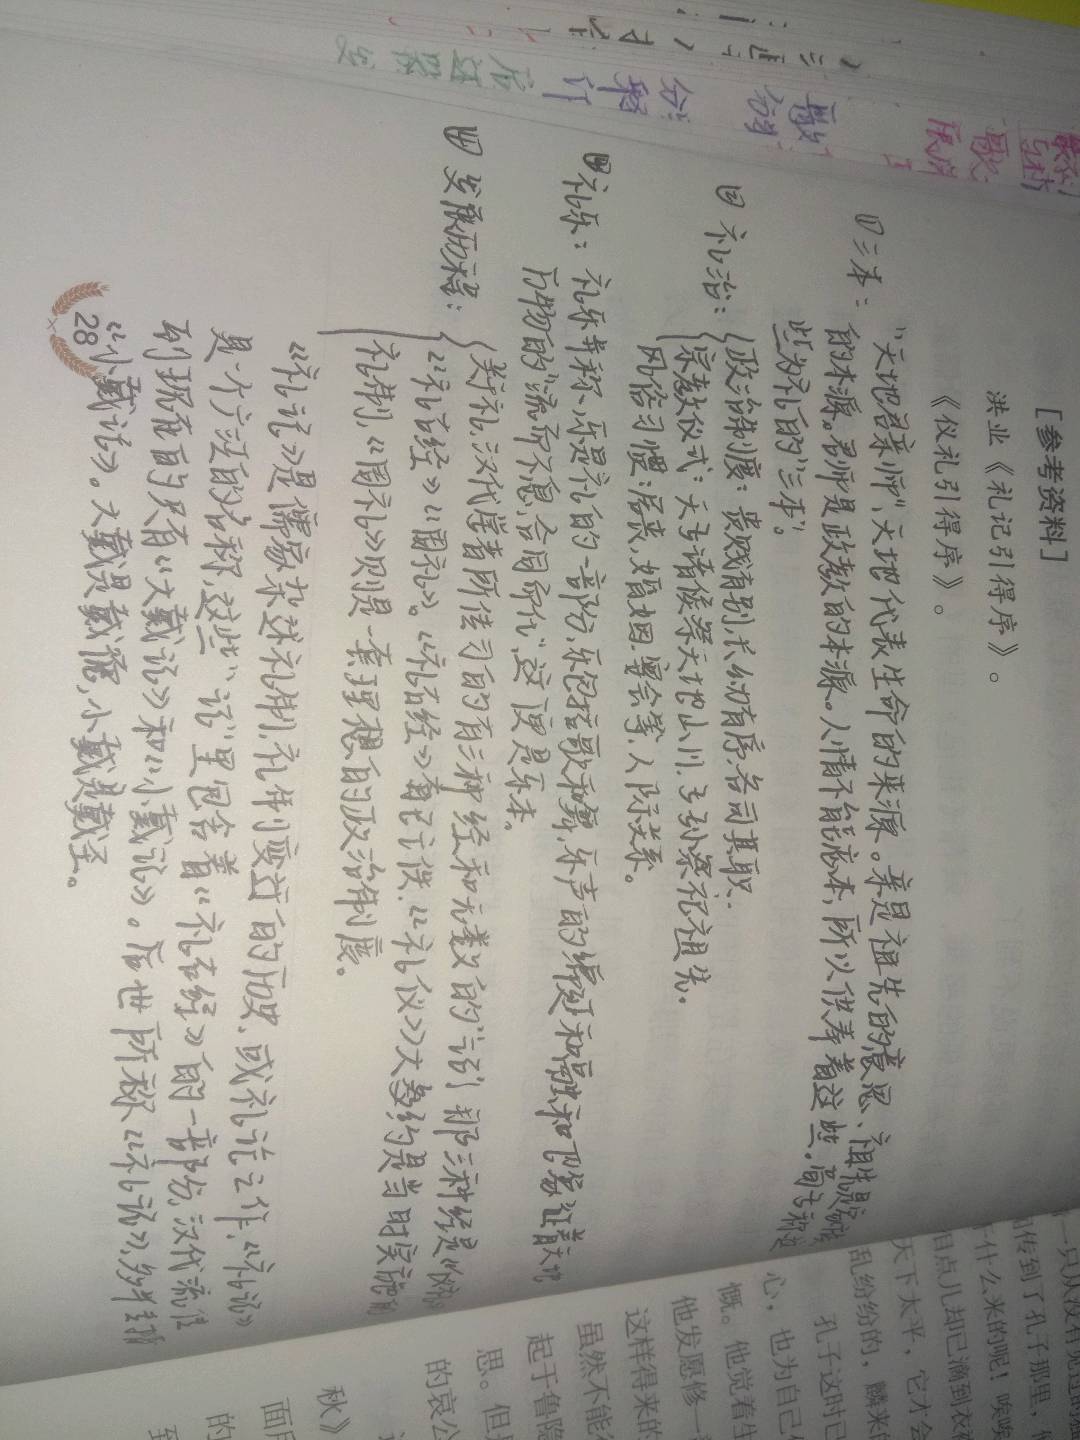 [参考资料]
洪业《礼记引得序》。
《仪礼引得序》。
三本：“天地君亲师”，天地代表生命的来源。亲是祖先的意思、祖先是家族
的本源。君师是政教的本源。人情不能忘本，所以供奉着这些。荀子称
些为礼的“三本”。
礼治：政治制度：贵贱有别，长幼有序，各司其职.
宗教仪式：天子诸侯祭天地山川.子孙祭祀祖先.
风俗习惯：居丧，婚姻.宴会等，人际关系。
礼乐：礼乐并称、乐是礼的一部份，乐包括歌和舞，乐声的绵延和融和
万物的“流而不息，合同而化”，这便是乐本。
发展历程：
类礼：汉代学者所传习的有三种经和无数的“记”那三种经是《仪礼》
《礼古经》《周礼》。《礼古经》者已亡佚.《礼仪》大约是当时实施的
礼制，《周礼》则是一套理想的政治制度。
《礼记》是儒家杂述礼制，礼制变迁的历史，或礼论之作，《礼记》
是个广泛的名称，这些“记”里包含着《礼古经》的一部份，汉代流传
到现在的只有《大戴记》和《小戴记》。后世所称《礼记》，多半是指
《小戴记》。大戴是戴德，小戴是戴圣。
28
一只从没有见过的
传到了孔子那里，
什么来的呢！唉唉
但点儿却已滴到衣
天下太平，它才会
乱纷纷的，麟来
孔子这时已
心，也为自己
慨。他觉着生
他发愿修一
这样得来的
虽然不能
起于鲁隐
思。但
的哀公
秋》
的